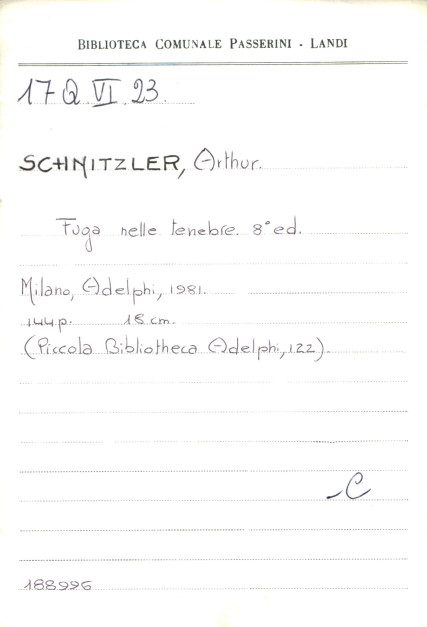 BIBLIOTECA COMUNALE PASSERINI - LANDI
17 Q VI 23.
SCHNITZLER, Arthur.
Fuga nelle tenebre. 8° ed.
Milano, Adelphi, 1981.
144 p. 18 cm.
(Piccola Bibliotheca Adelphi, 122).
C
188996